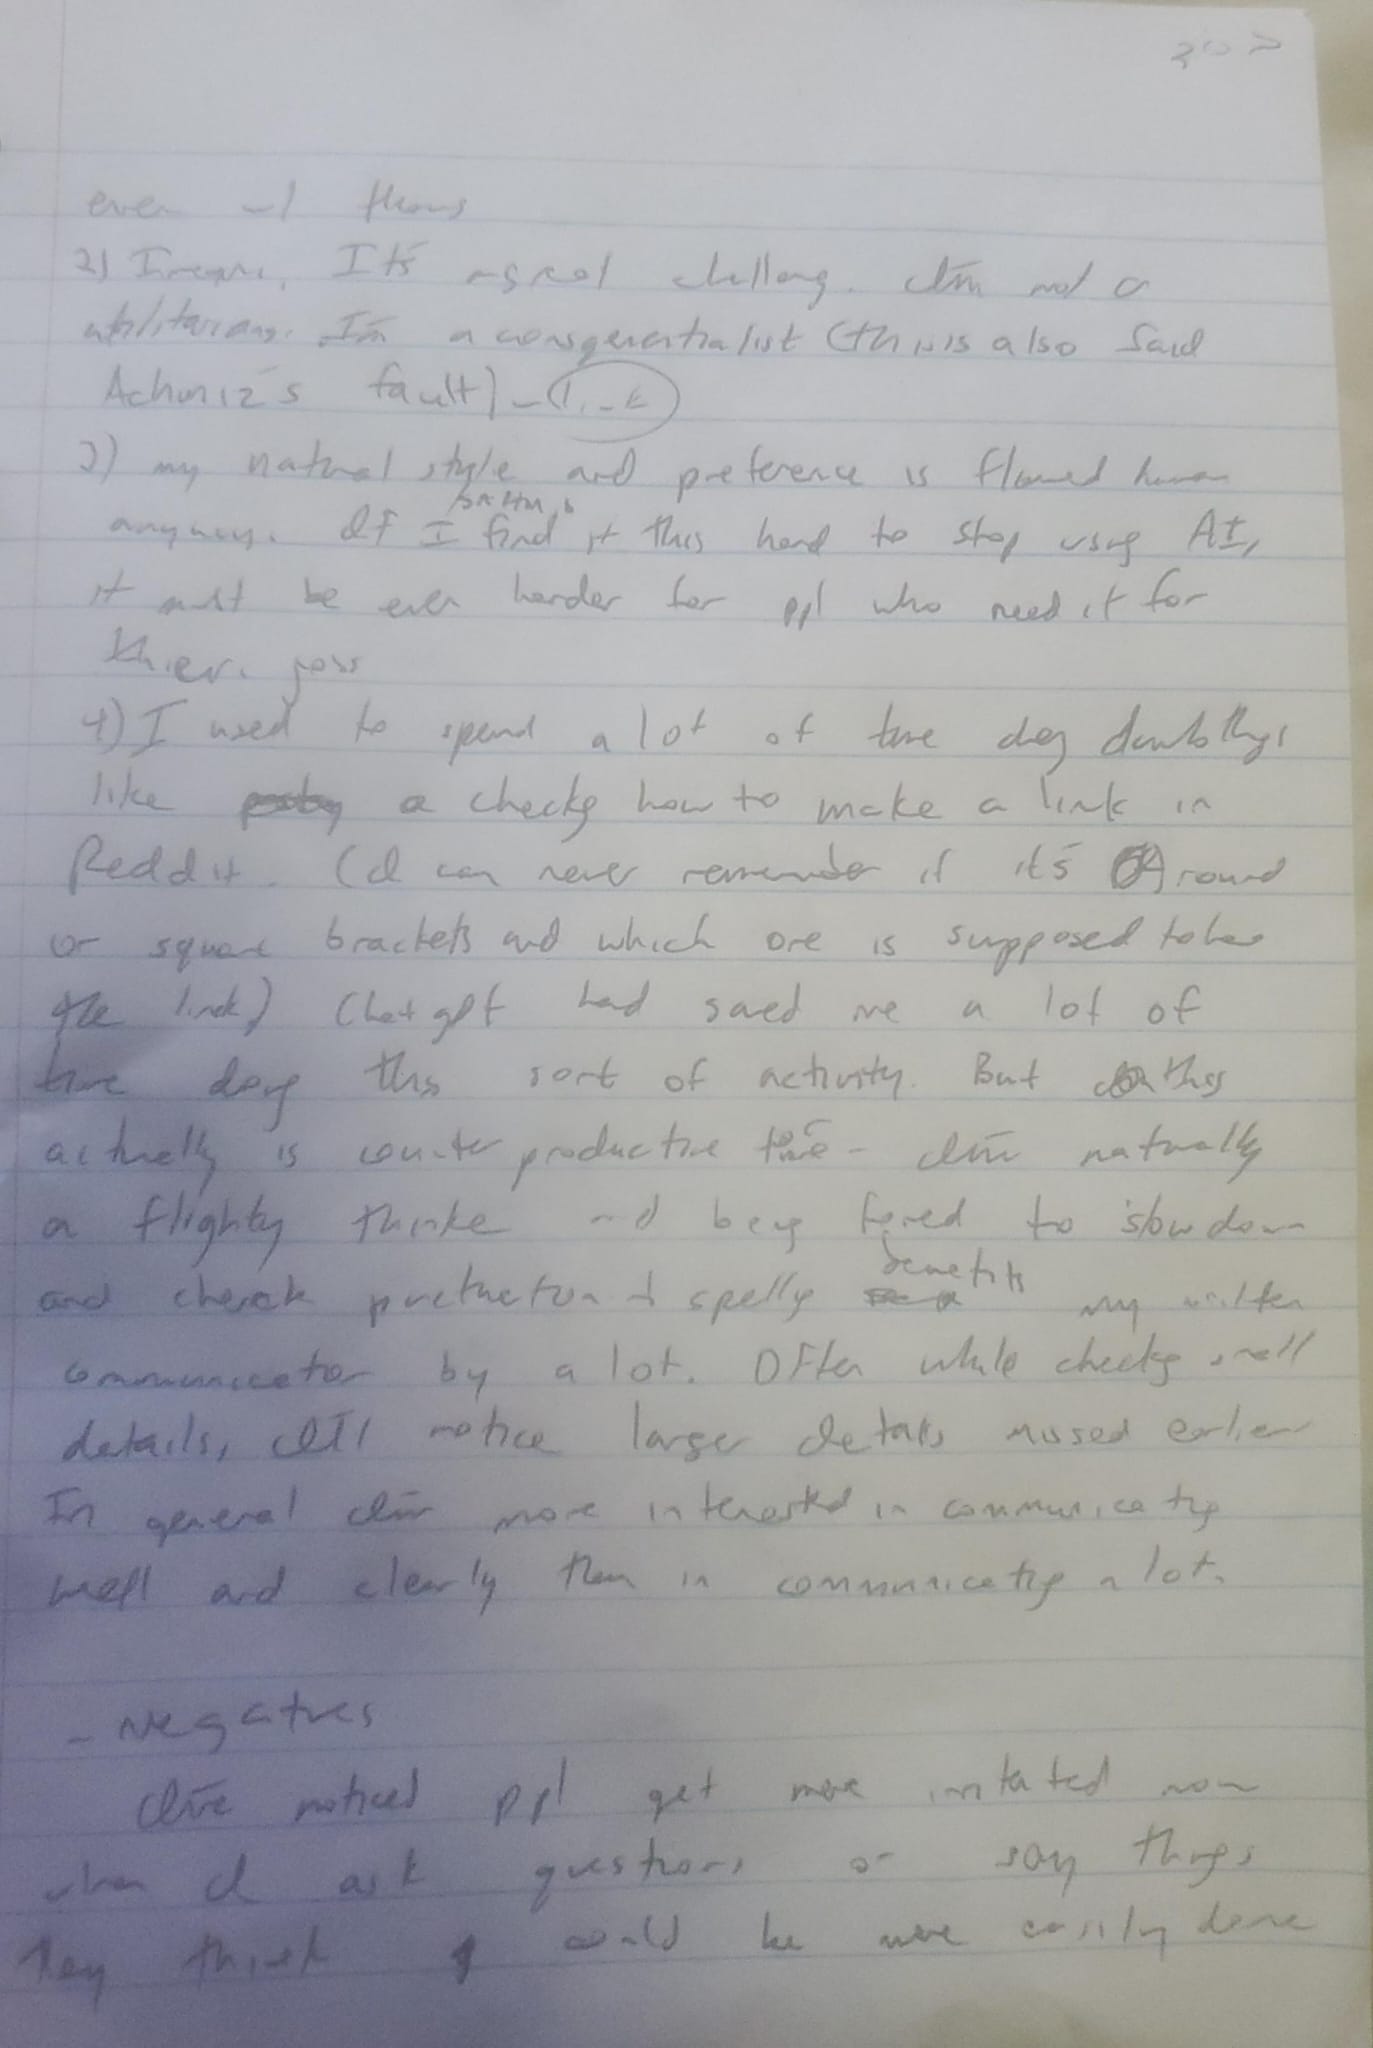 even
2) It's not a
I'm a consequentialist (this is also Said
Achmiz's fault) -
3) my natural style and preference is flawed human
anyway. If I find it this hard to stop using AI,
it must be even harder for ppl who need it for

4) I used to spend a lot of time doing dumb things
like a checkg how to make a link in
Reddit. (I can never remember if it's round
or square brackets and which one is supposed to be
the link) Chatgpt had saved me a lot of
time doing this sort of activity. But this
actually is counter productive - I'm naturally
a flighty thinker and being forced to slow down
and check punctuation & spelling benefits my written
communication by a lot. Often while checkg small
details, I'll notice larger details missed earlier
In general I'm more interested in communicating
well and clearly than in communicating a lot.
- Negatives
I've noticed ppl get more irritated now
when I ask questions or say things
they think could be more easily done